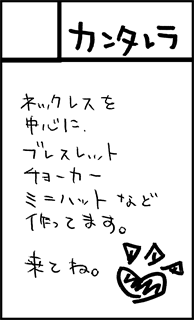 カンタレラ
ネックレスを
中心に、
ブレスレット
チョーカー
ミニハットなど
作ってます。
来てね。